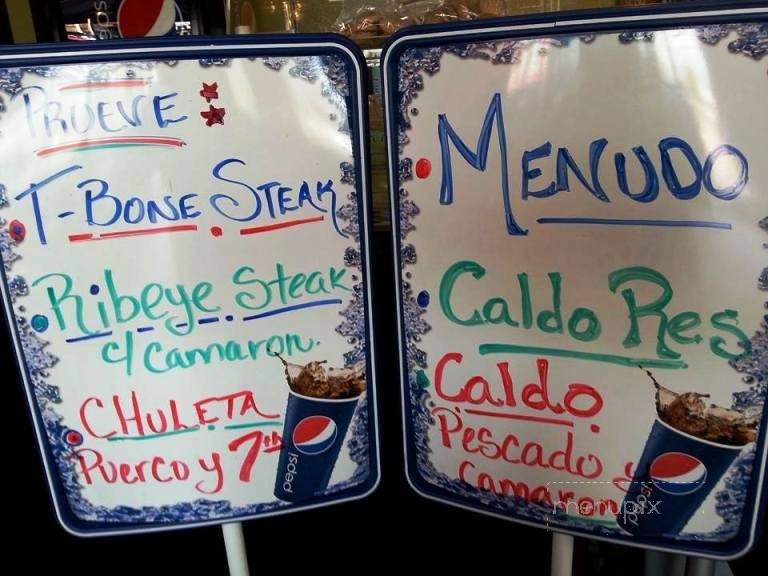 PRUEVE
T-BONE STEAK
Ribeye Steak
c/camaron.
CHULETA
Puerco y 7th
pepsi
MENUDO
Caldo Res
Caldo
Pescado y
camaron
pepsi
menupix